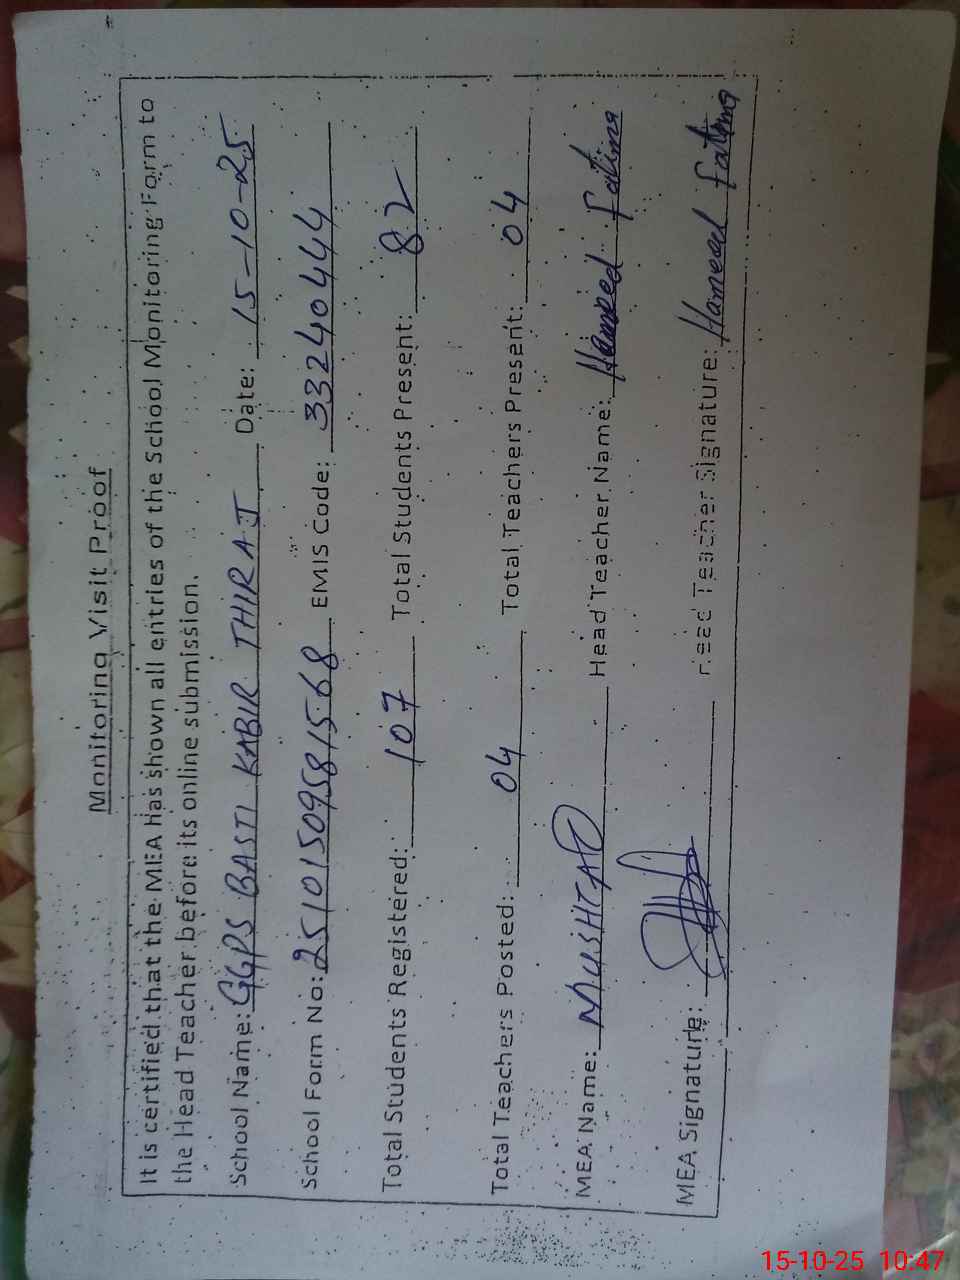 Monitoring Visit Proof
It is certified that the MEA has shown all entries of the School Monitoring Form to
the Head Teacher before its online submission.
School Name: GGPS BASTI KABIR THIRAJ Date: 15-10-25
School Form No: 25101509581568 EMIS Code: 33240444
Total Students Registered: 107 Total Students Present: 82
Total Teachers Posted: 04 Total Teachers Present: 04
MEA Name: MUSHTAQ Head Teacher Name: Hameed Fatima
MEA Signature: Head Teacher Signature: Hameed Fatima
15-10-25 10:47